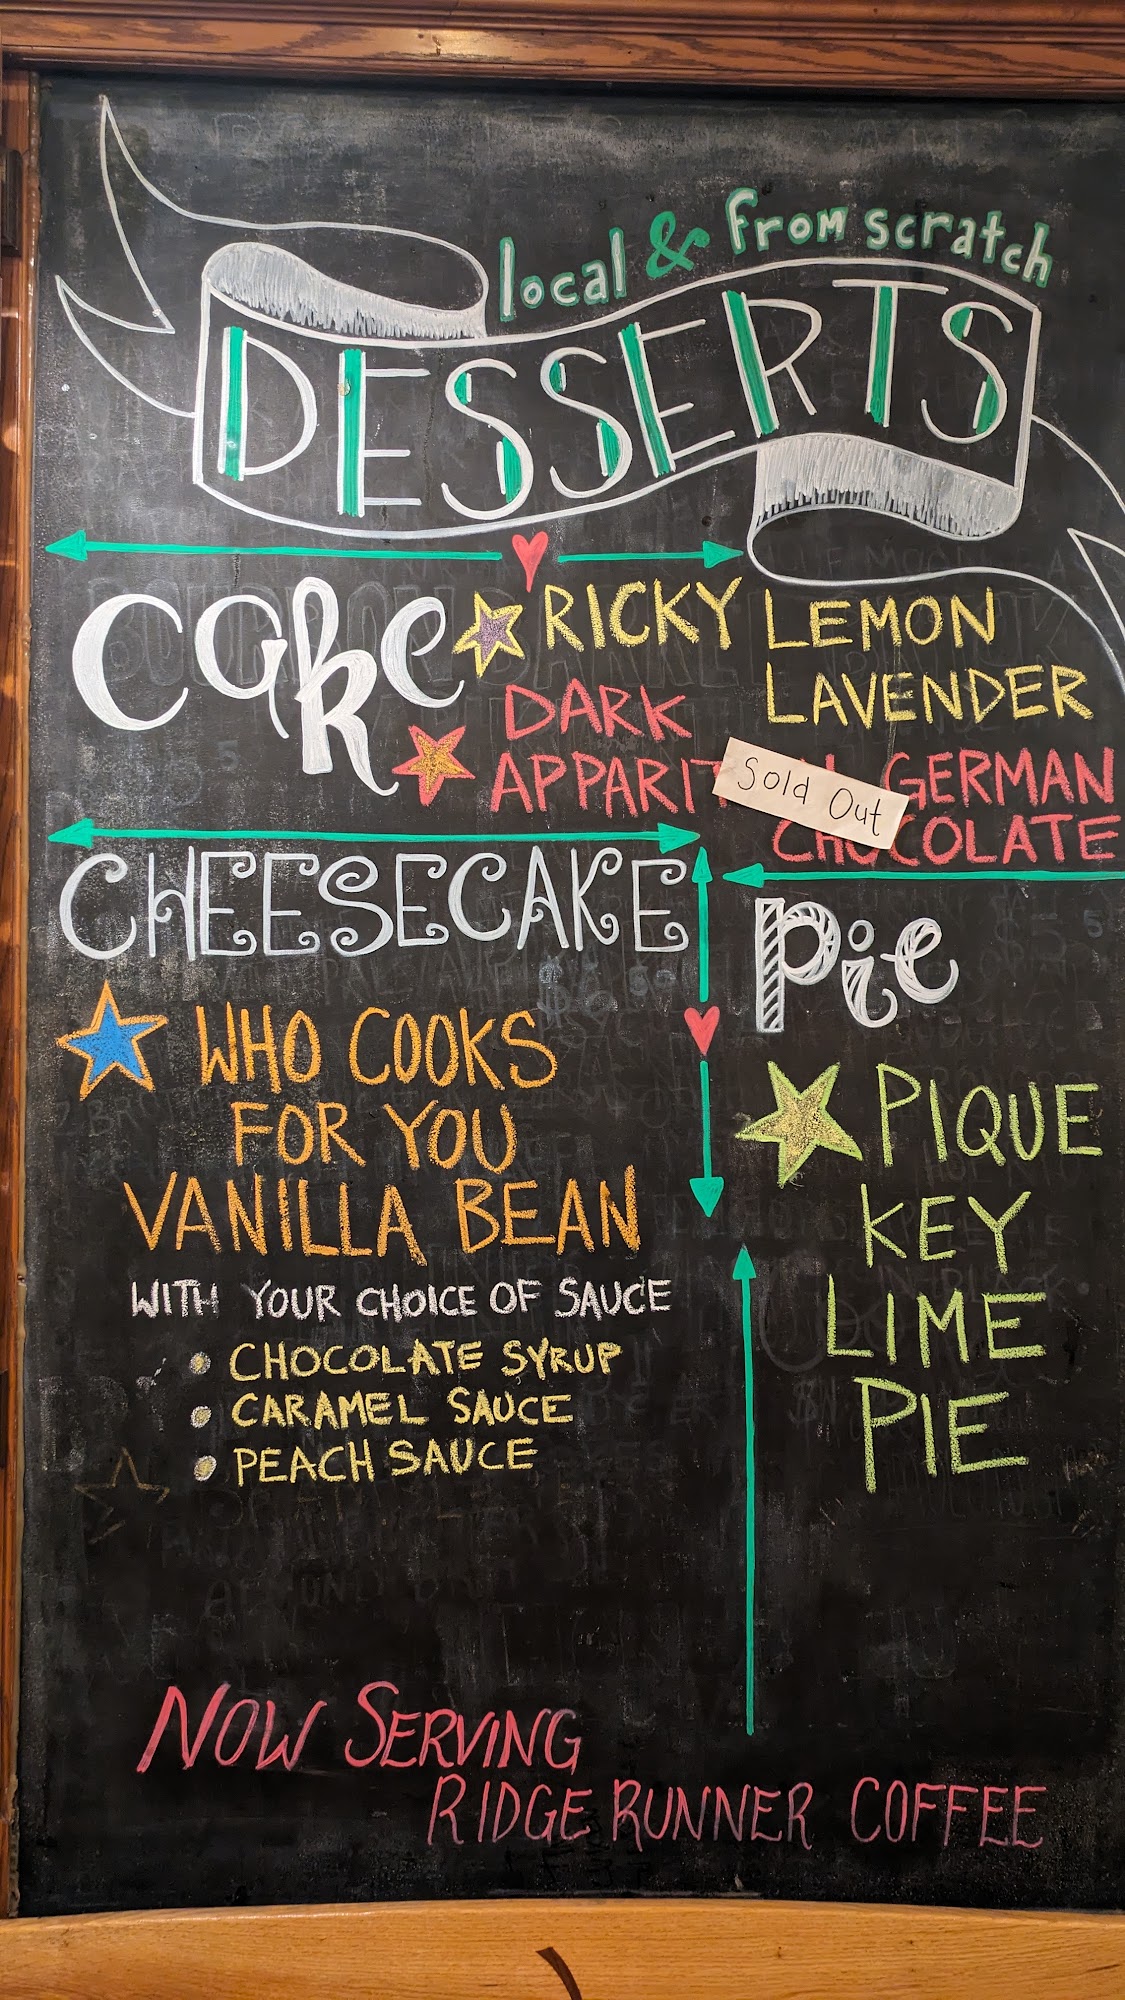 local & from scratch
DESSERTS
Cake
RICKY LEMON
LAVENDER
DARK
APPARIT
GERMAN
CHOCOLATE
Sold Out
CHEESECAKE
WHO COOKS
FOR YOU
VANILLA BEAN
WITH YOUR CHOICE OF SAUCE
CHOCOLATE SYRUP
CARAMEL SAUCE
PEACH SAUCE
Pie
PIQUE
KEY
LIME
PIE
NOW SERVING
RIDGE RUNNER COFFEE